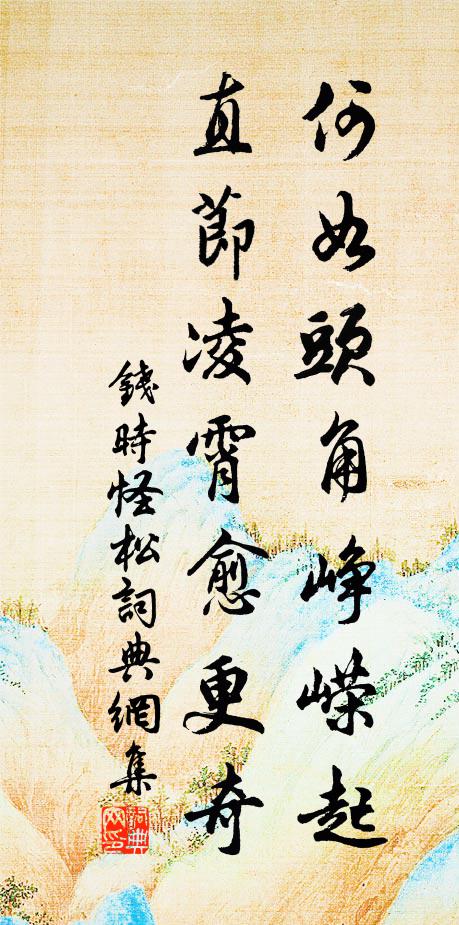 何如頭角崢嶸起
直節凌霄愈更奇
錢時怪松詞典網集
詞典
网印